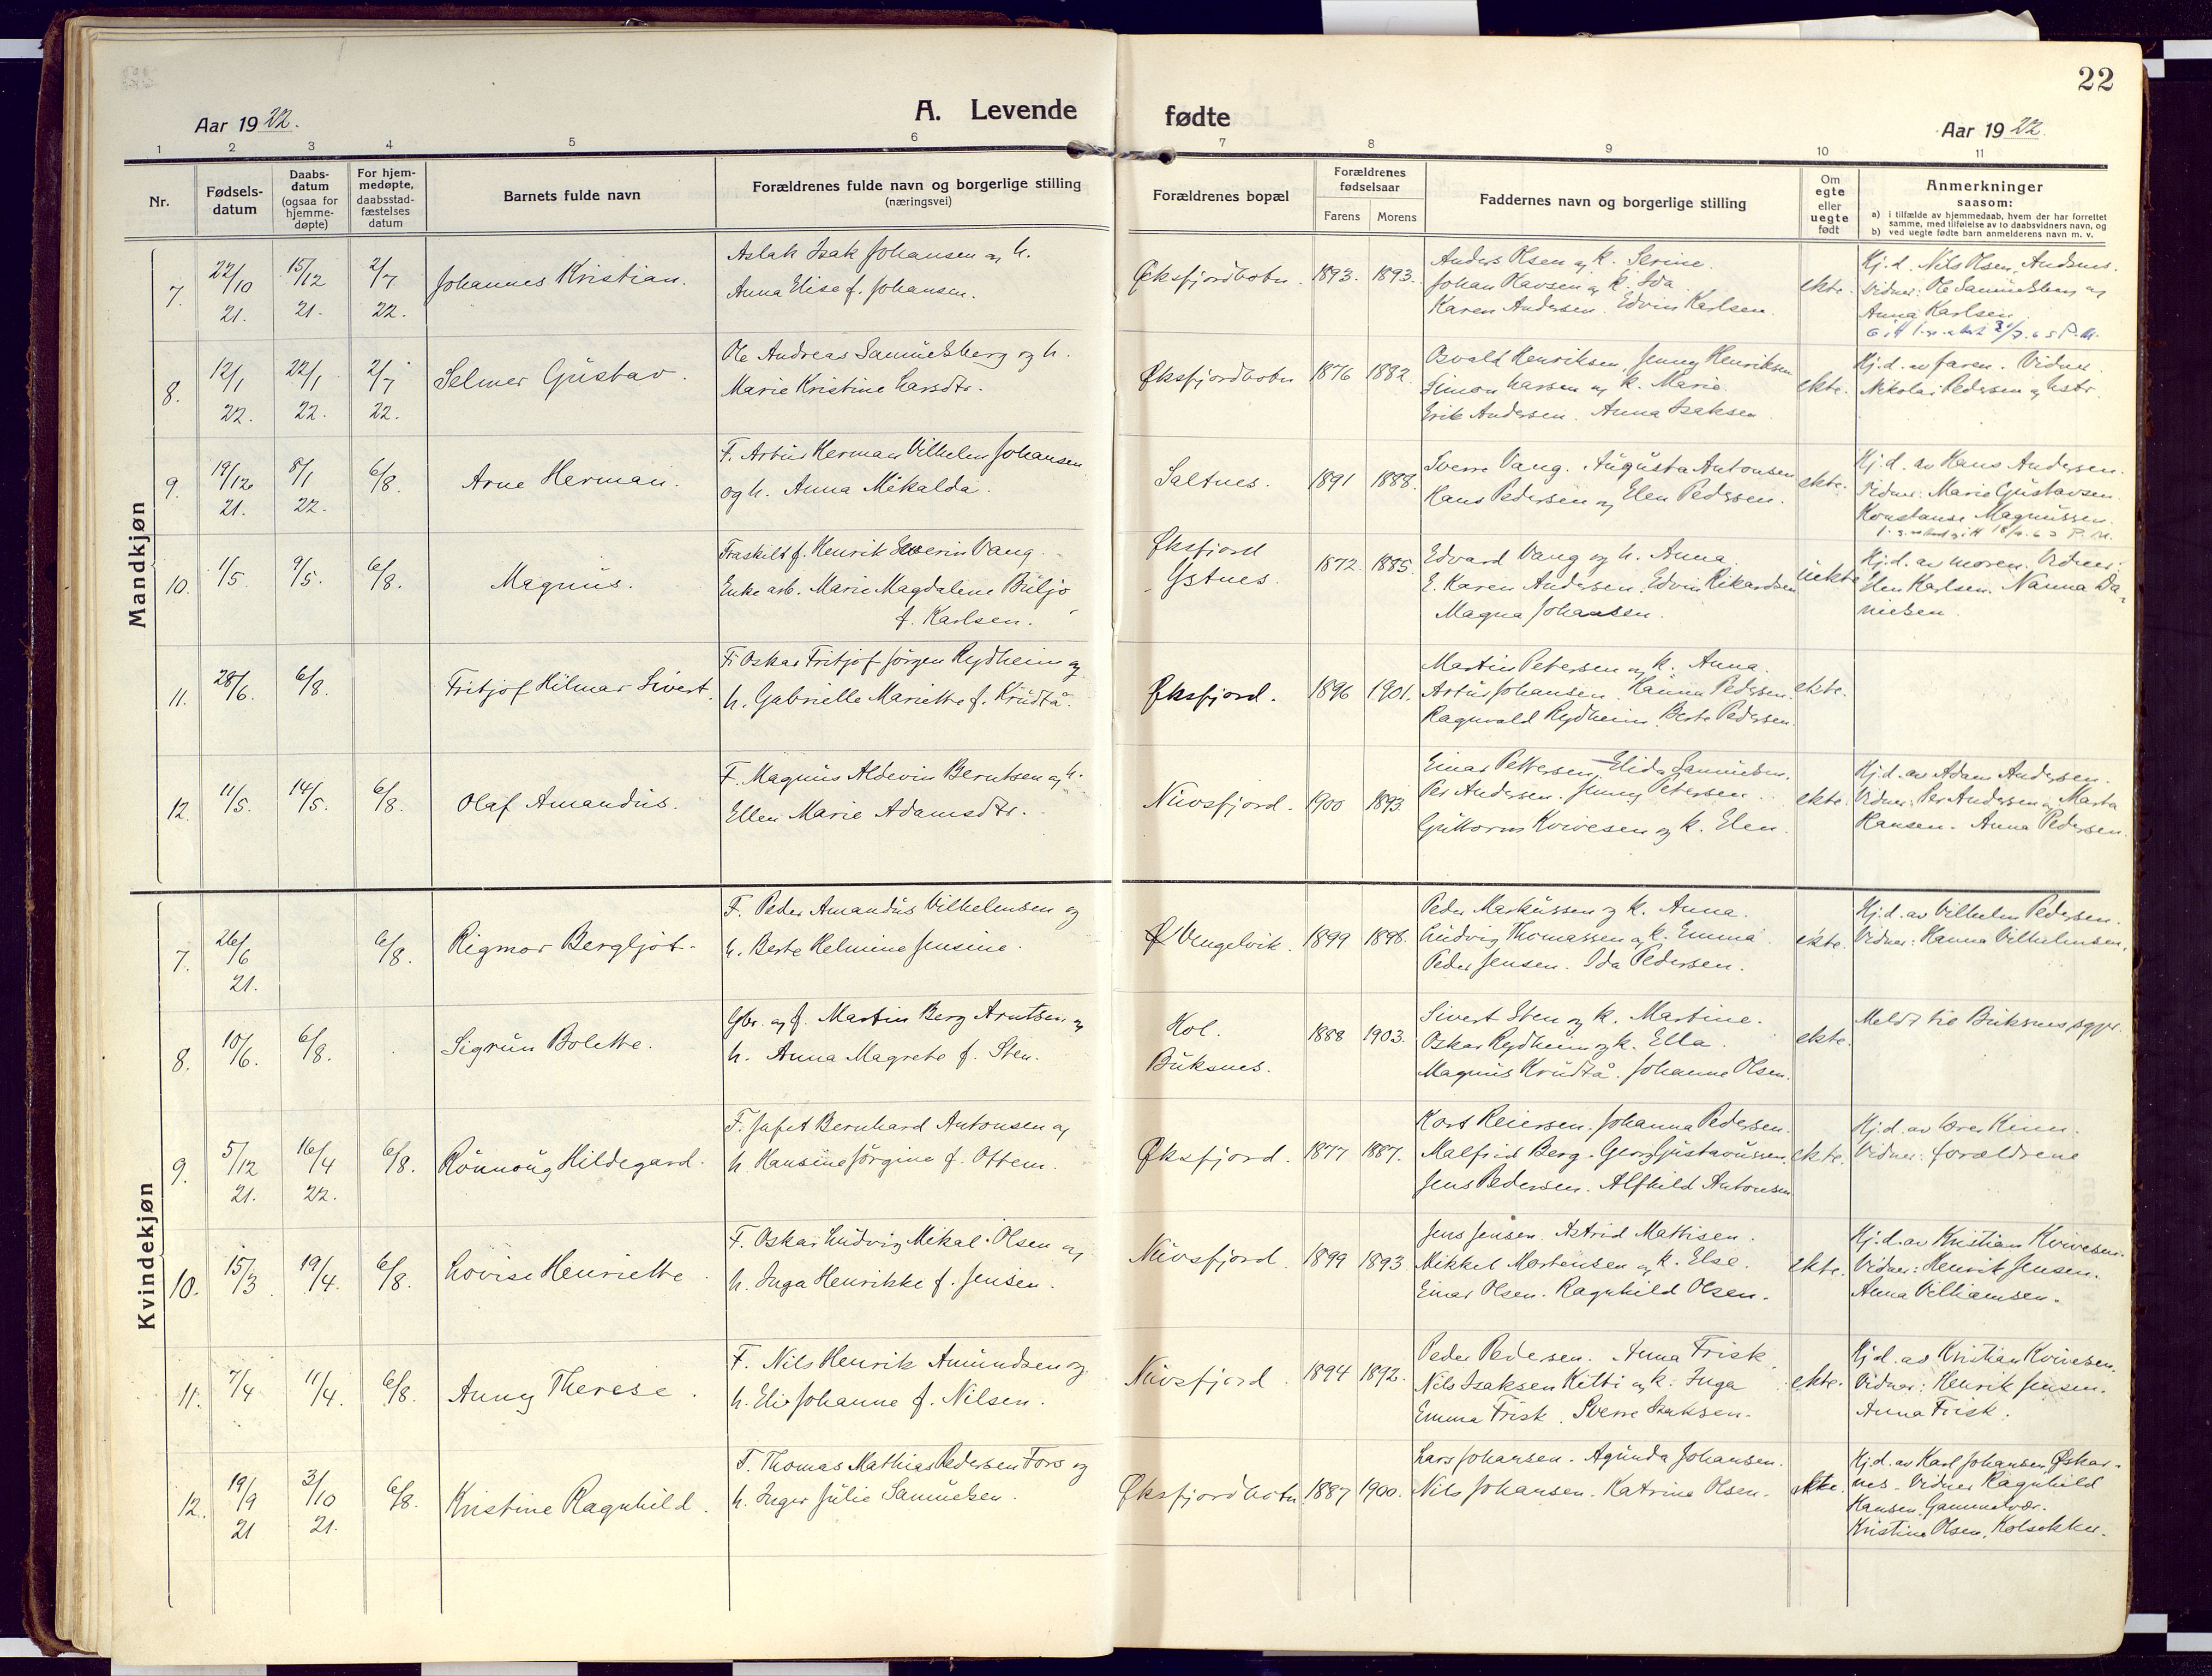 22
Aar 1922.
A. Levende fødte
Aar 1922.
1 2 3 4 5 6 7 8 9 10 11
Nr.
Fødsels-
datum
Daabs-
datum
(ogsaa for
hjemme-
døpte)
For hjem-
medøpte,
daabsstad-
fæstelses
datum
Barnets fulde navn
Forældrenes fulde navn og borgerlige stilling
(næringsvei)
Forældrenes bopæl
Forældrenes
fødselsaar
Farens Morens
Faddernes navn og borgerlige stilling
Om
egte
eller
uegte
født
Anmerkninger
saasom:
a) i tilfælde av hjemmedaab, hvem der har forrettet
samme, med tilføielse av to daabsvidners navn, og
b) ved uegte fødte barn anmelderens navn m. v.
Mandkjøn
7. 22/10 21. 15/12 21. 2/7 22. Johannes Kristian.
Aslak Isak Johansen og h.
Anna Elise f. Johansen.
Øksfjordbotn. 1893. 1893.
Anders Olsen og k. Serine.
Johan Olavsen og k. Ida.
Karen Andersen. Edvin Karlsen.
ekte.
Hj.d. Nils Olsen, Andsnes.
Vidner: Ole Samuelsberg og
Anna Karlsen
8. 12/1 22. 22/1 22. 2/7 22. Selmer Gustav.
Ole Andreas Samuelsberg og h.
Marie Kristine Larsdtr.
Øksfjordbotn 1876 1882.
Osvald Henriksen, Jenny Henriksen
Simon Larsen og k. Marie.
Erik Andersen. Anna Isaksen.
ekte.
Hj.d. av faren. Vidner
Nikolai Pedersen og hstr.
9. 19/12 21. 8/1 22. 6/8. Arne Herman.
F. Artur Herman Vilhelm Johansen
og h. Anna Mikalda.
Saltnes. 1891 1888.
Sverre Vang. Augusta Antonsen
Hans Pedersen og Elen Pedersen.
ekte.
Hj.d. av Hans Andersen.
Vidner: Marie Gustavsen.
Konstanse Magnussen.
10. 1/5. 9/5. 6/8. Magnus.
Fraskilt f. Henrik Severin Vang.
Enke arb. Marie Magdalene Buljo
f. Karlsen.
Øksfjord
Ystnes. 1872. 1885.
Edvard Vang og h. Anna.
E. Karen Andersen. Edvin Rikardsen
Magna Johansen.
uekte
Hj.d. av moren. Vidner:
Elen Karlsen. Nanna Da-
nielsen.
11. 28/6. 6/8. Fritjof Hilmar Sivert.
Fi Oskar Fritjof Jørgen Rydheim og
h. Gabrielle Mariette f. Krudtå.
Øksfjord. 1896 1901.
Martin Petersen og k. Anna.
Artur Johansen. Hanna Pedersen.
Ragnvald Rydheim. Berte Pedersen.
ekte.
12. 11/5. 14/5. 6/8. Olaf Amandus.
F. Magnus Aldevin Berntsen og h.
Ellen Marie Adamsdtr.
Nuvsfjord. 1900 1893
Einar Pettersen, Elida Samuelsen.
Per Andersen. Jenny Petersen.
Guttorm Kvivesen og k. Elen.
ekte.
Hj.d. av Adam Andersen.
Vidner: Per Andersen og Marta
Hansen. Anna Pedersen.
Kvindekjøn
7. 26/6 21. 6/8. Rigmor Bergljot.
F. Peder Amandus Vilhelmsen og
h. Berte Helmine Jensine.
Ø Vengelvik. 1899 1898.
Peder Markussen og k. Anna.
Ludvig Thomassen og k. Emma.
Peder Jensen. Ida Pedersen.
ekte.
Hj.d. av Vilhelm Pedersen.
Vidner: Hanna Vilhelmsen.
8. 10/6. 6/8. Sigrun Bolette.
Gbr. og f. Martin Berg Arntsen og
h. Anna Magrete f. Sten.
Hol.
Buksnes. 1888 1903.
Sivert Sten og k. Martine.
Oskar Rydheim og k. Ella.
Magnus Krudtå. Johanne Olsen.
ekte.
Meldt til Buksnes
9. 5/12 21. 16/4 22. 6/8. Rønnoug Hildegard.
F. Jafet Bernhard Antonsen og
h. Hansine Jørgine f. Ottem.
Øksfjord. 1877 1887.
Kort Reiersen. Johanna Pedersen.
Malfrid Berg. Georg Gustavussen.
Jens Pedersen. Alfhild Antonsen
ekte.
Hj.d. av lærer Kiim.
Vidner: forældrene
10. 15/3. 19/4. 6/8. Lovise Henriette.
F. Oskar Ludvig Mikal Olsen og
h. Inga Henrikke f. Jensen.
Nuvsfjord. 1899 1893.
Jens Jensen. Astrid Mathisen.
Mikkel Mortensen og k. Else.
Einar Olsen. Ragnhild Olsen.
ekte.
Hj.d. av Kristian Kvivesen.
Vidner: Henrik Jensen.
Anna Villiamsen.
11. 7/4 11/4. 6/8. Anny Therese.
F. Nils Henrik Amundsen og
h. Eli Johanne f. Nilsen.
Nuvsfjord. 1894 1892.
Peder Pedersen. Anna Frisk.
Nils Isaksen Kitti og k. Inga
Emma Frisk. Sverre Isaksen.
ekte.
Hj.d. av Kristian Kvivesen.
Vidner: Henrik Jensen.
Anna Frisk.
12. 19/9 21 3/10 21. 6/8. Kristine Ragnhild.
F. Thomas Mathias Pedersen Fors og
h. Inger Julie Samuelsen.
Øksfjordbotn 1887 1900.
Lars Johansen. Agunda Johansen.
Nils Johansen. Katrine Olsen.
ekte.
Hj.d. av Karl Johansen Øskar-
nes. Vidner Ragnhild
Hansen. Gammelvær.
Kristine Olsen,